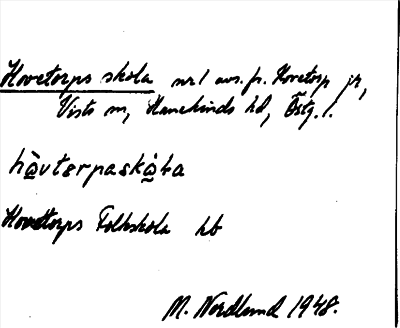 Hovetorps skola nr 1 avs. fr. Hovetorp jr,
Vists sn, Hanekinds hd, Östg. l.
hå̀vtərpaskå̀ɫa
Hovetorps Folkskola hb
M. Nordlund 1948.